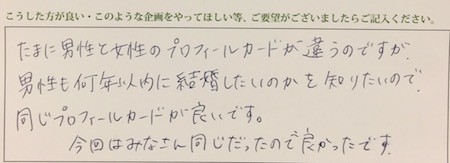 こうした方が良い・このような企画をやってほしい等、ご要望がございましたらご記入ください。
たまに男性と女性のプロフィールカードが違うのですが、
男性も何年以内に結婚したいのかを知りたいので、
同じプロフィールカードが良いです。
今回はみなさん同じだったので良かったです。